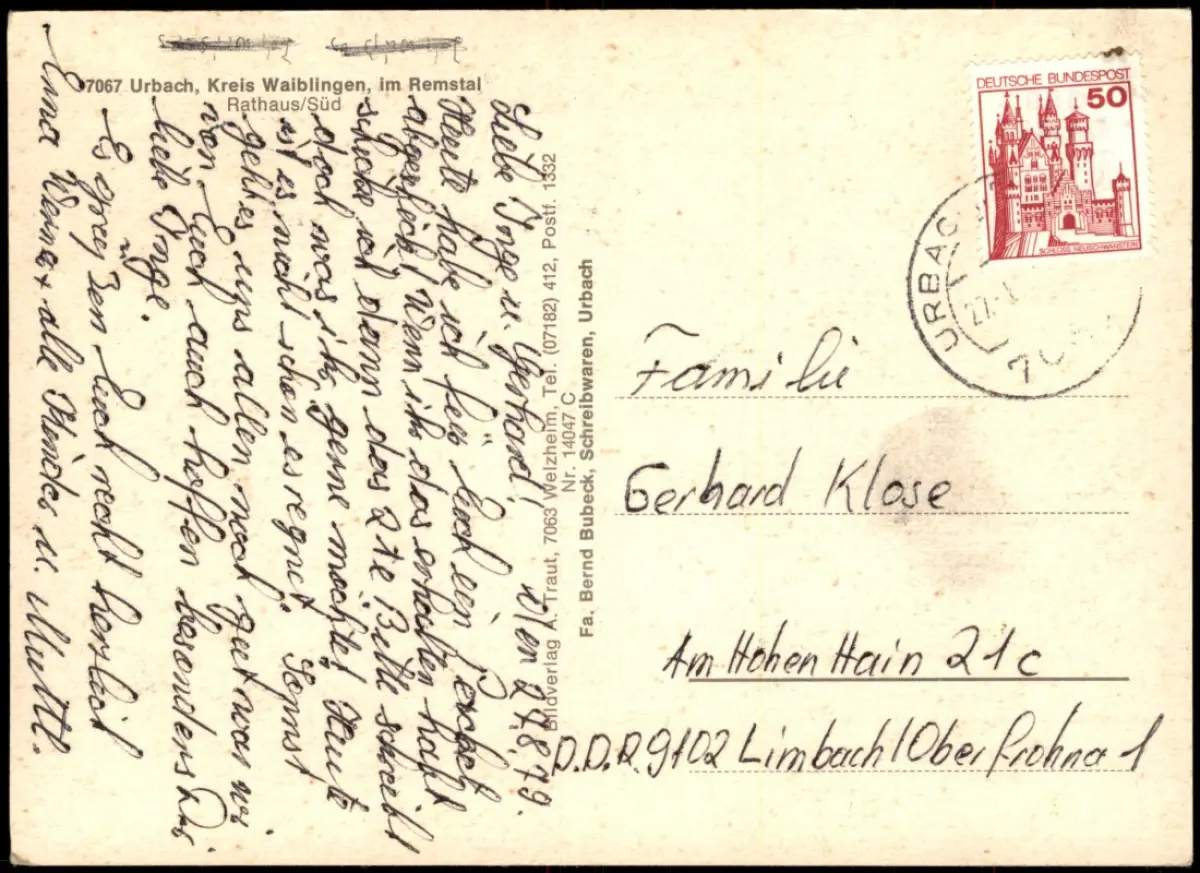 7067 Urbach, Kreis Waiblingen, im Remstal
Rathaus/Süd
d. den 27.8.79.
Liebe Inge u. Gerhard!
Heute habe ich für Euch ein Päckch
abgeschickt. Wenn ihr das erhalten habt
schicke ich dann das 2te Bitte schreibt
doch was ihr gerne möchtet Heute
ist es nicht schön es regnet Sonnst
geht es uns allen noch gut was wir
von Euch auch hoffen besonders Dir
liebe Inge.
Es grüßen Euch recht herzlich
Erna Werner alle Kinder u. Mutti.
Bildverlag A. Traut, 7063 Welzheim, Tel. (07182) 412, Postf. 1332
Nr. 14047 C
Fa. Bernd Bubeck, Schreibwaren, Urbach
DEUTSCHE BUNDESPOST
50
SCHLOSS NEUSCHWANSTEIN
URBACH
27.
70
Familie
Gerhard Klose
Am Hohen Hain 21c
D.D.R. 9102 Limbach/Oberfrohna 1